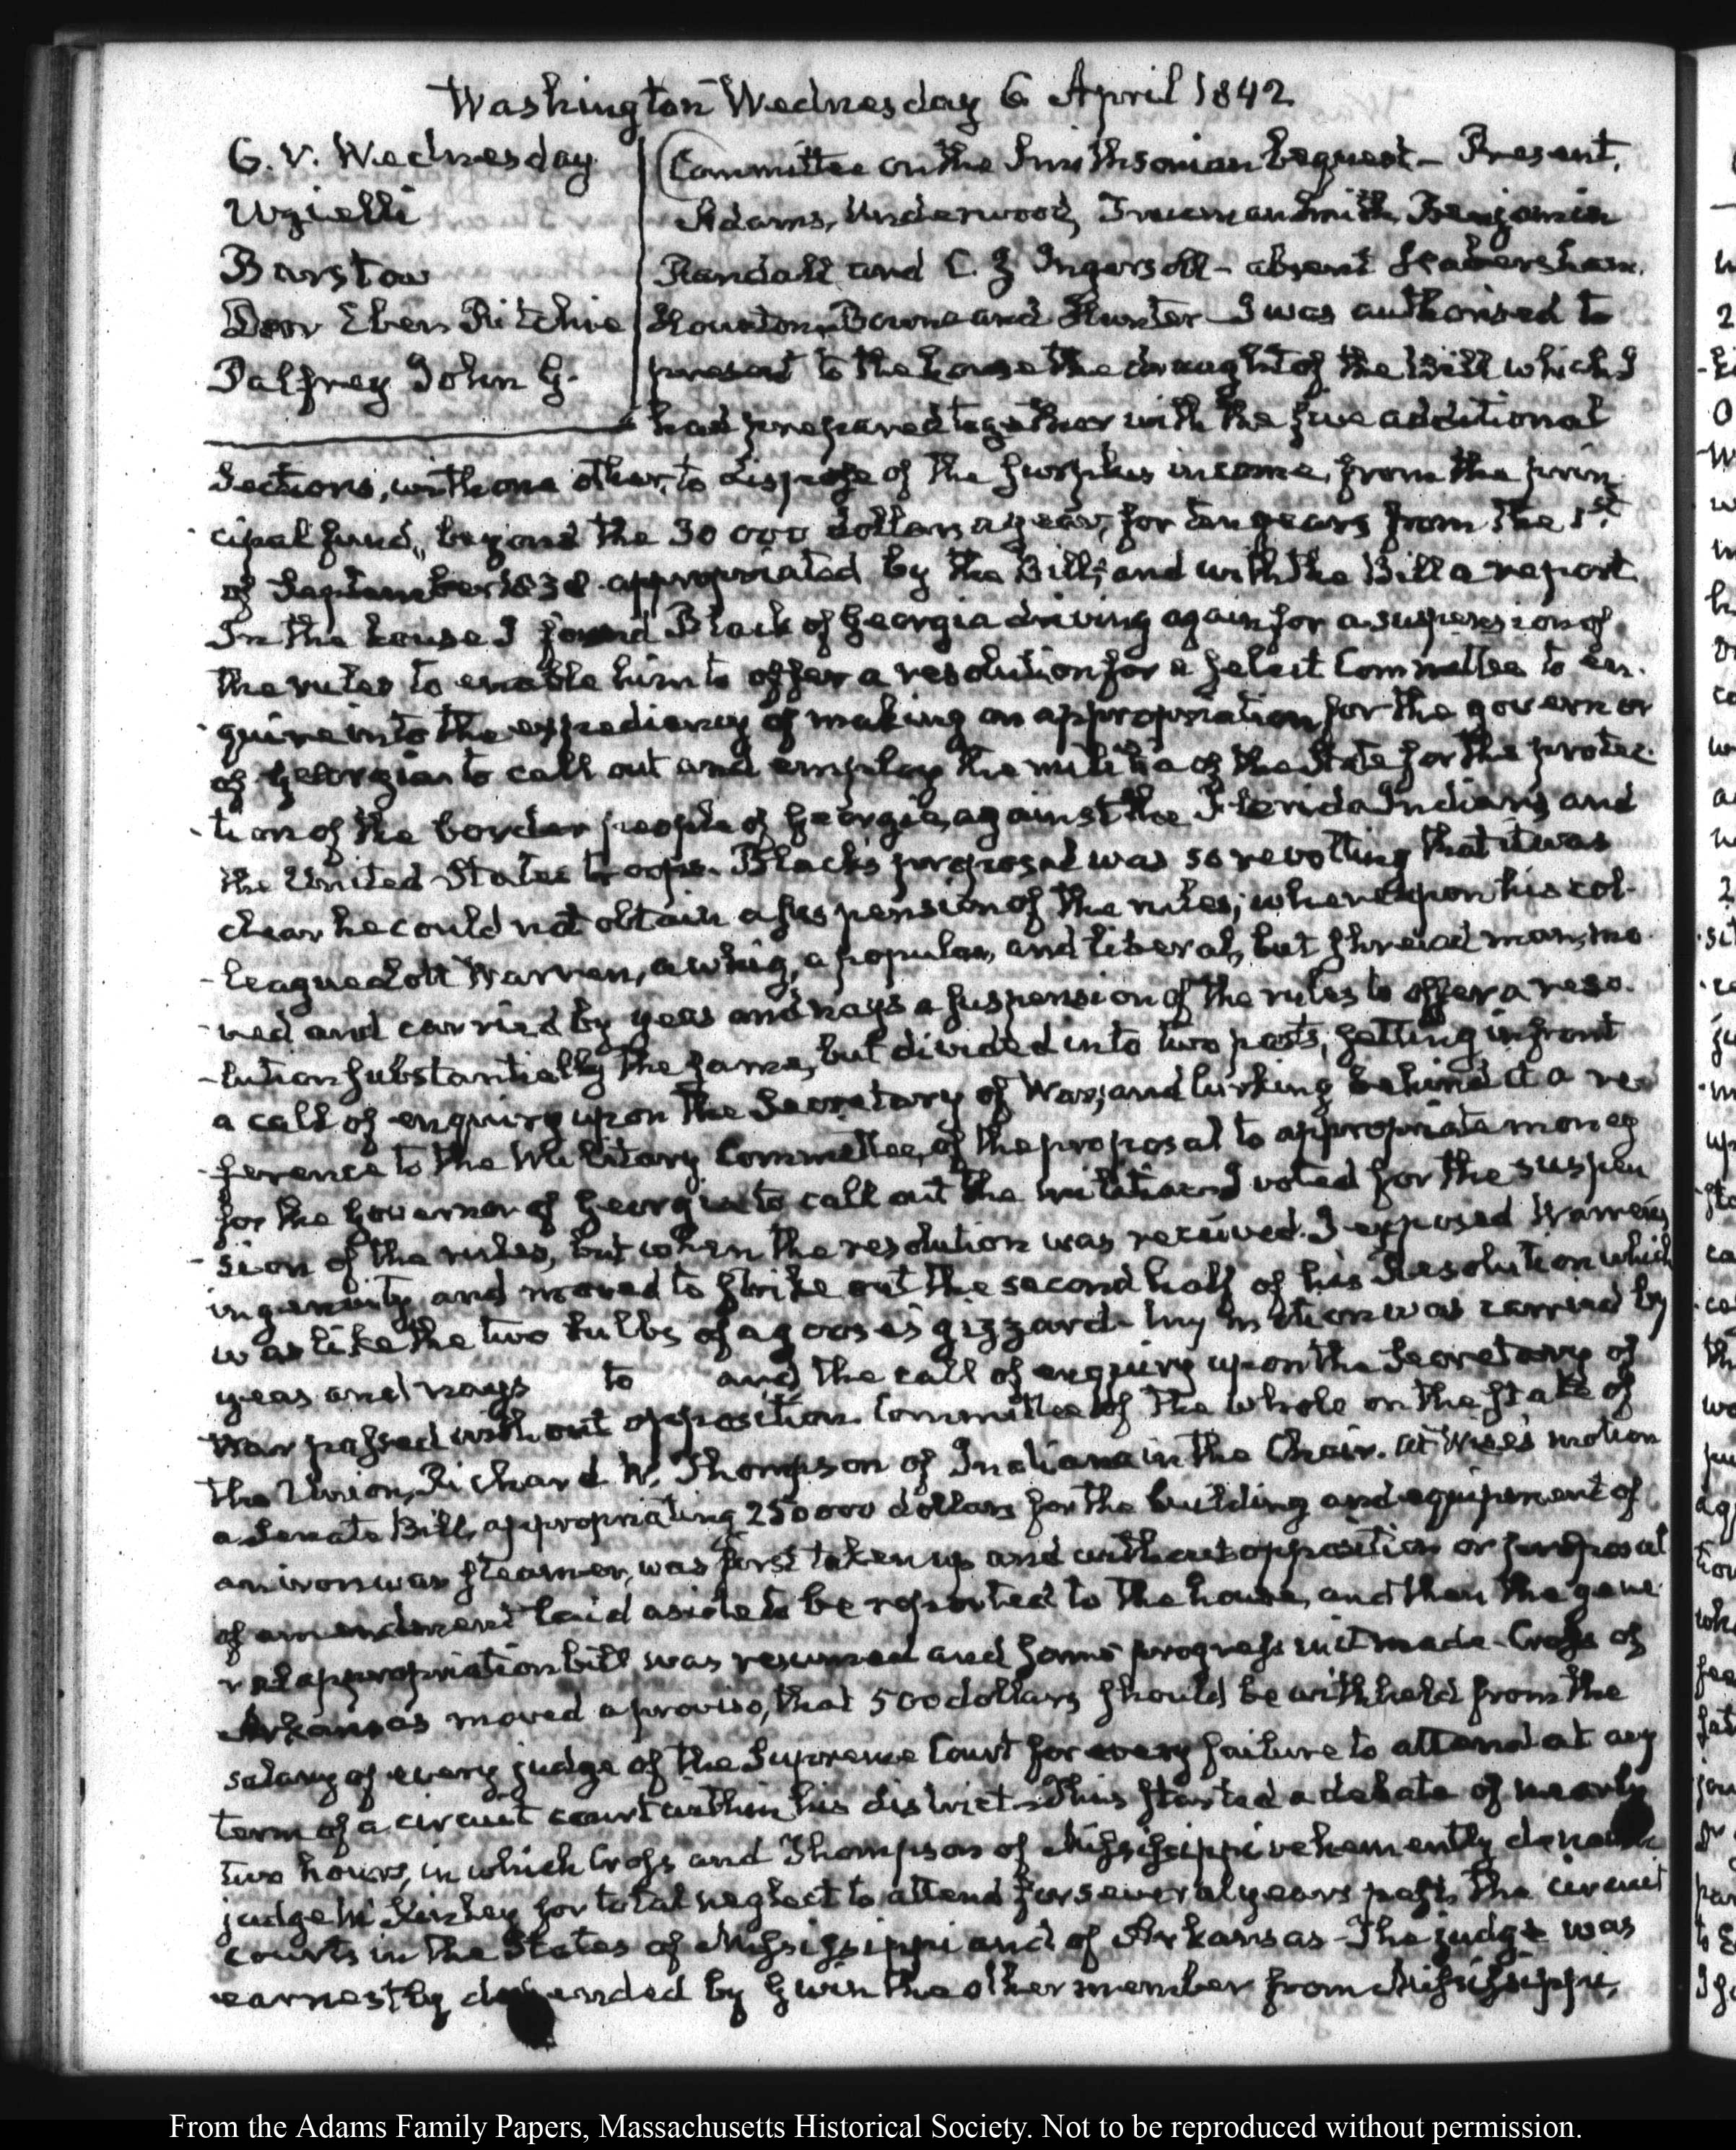 Washington Wednesday 6 April 1842
6. V. Wednesday
Uzielli
Barstow
Dorr Eben Ritchie
Palfrey John G.
Committee on the Smithsonian bequest – Present,
Adams, Underwood, Truman Smith, Benjamin
Randall and C. J Ingersoll – absent Habersham.
Houston, Bowne and Hunter – I was authorised to
present to the house the draught of the Bill which I
had prepared together with the five additional
Sections, with one other, to dispose of the surplus income, from the prin-
cipal fund, beyond the 30 000 dollars a year, for ten years from the 1st
of September 1838. appropriated by the Bill; and with the Bill a report
In the house I found Black of Georgia driving again for a suspension of
the rules to enable him to offer a resolution for a select Committee to en-
quire into the expediency of making an appropriation for the governor
of Georgia to call out and employ the militia of the State for the protec-
tion of the border people of Georgia, against the Florida Indians and
the United States troops. Black's proposal was so revolting that it was
clear he could not obtain a suspension of the rules; whereupon his col-
league Lott Warren, a whig, a popular, and liberal, but shrewd man, mo-
ved and carried by yeas and nays a suspension of the rules to offer a reso-
lution substantially the same, but divided into two parts, setting in front
a call of enquiry upon the Secretary of War; and lurking behind it a re-
ference to the Military Committee, of the proposal to appropriate money
for the Governor of Georgia to call out the militia – I voted for the suspen-
sion of the rules, but when the resolution was received. I exposed Warren's
ingenuity and moved to strike out the second half of his Resolution which
was like the two bulbs of a goose's gizzard – my motion was carried by
yeas and nays to and the call of enquiry upon the Secretary of
War passed without opposition. Committee of the whole on the state of
the Union, Richard W. Thompson of Indiana in the Chair. At Wise's motion
a Senate Bill, appropriating 250 000 dollars for the building and equipment of
an iron war steamer, was first taken up and without opposition or proposal
of amendment laid aside to be reported to the house, and then the gene-
ral appropriation bill was resumed and some progress in it made – Cross of
Arkansas moved a proviso, that 500 dollars should be withheld from the
salary of every judge of the Supreme Court for every failure to attend at any
term of a circuit court within his district – This started a debate of nearly
two hours, in which Cross and Thompson of Mississippi vehemently
judge McKinley for total neglect to attend for several years past, the circuit
courts in the States of Mississippi and of Arkansas – The judge was
earnestly defended by Gwin the other member from Mississippi,
From the Adams Family Papers, Massachusetts Historical Society. Not to be reproduced without permission.